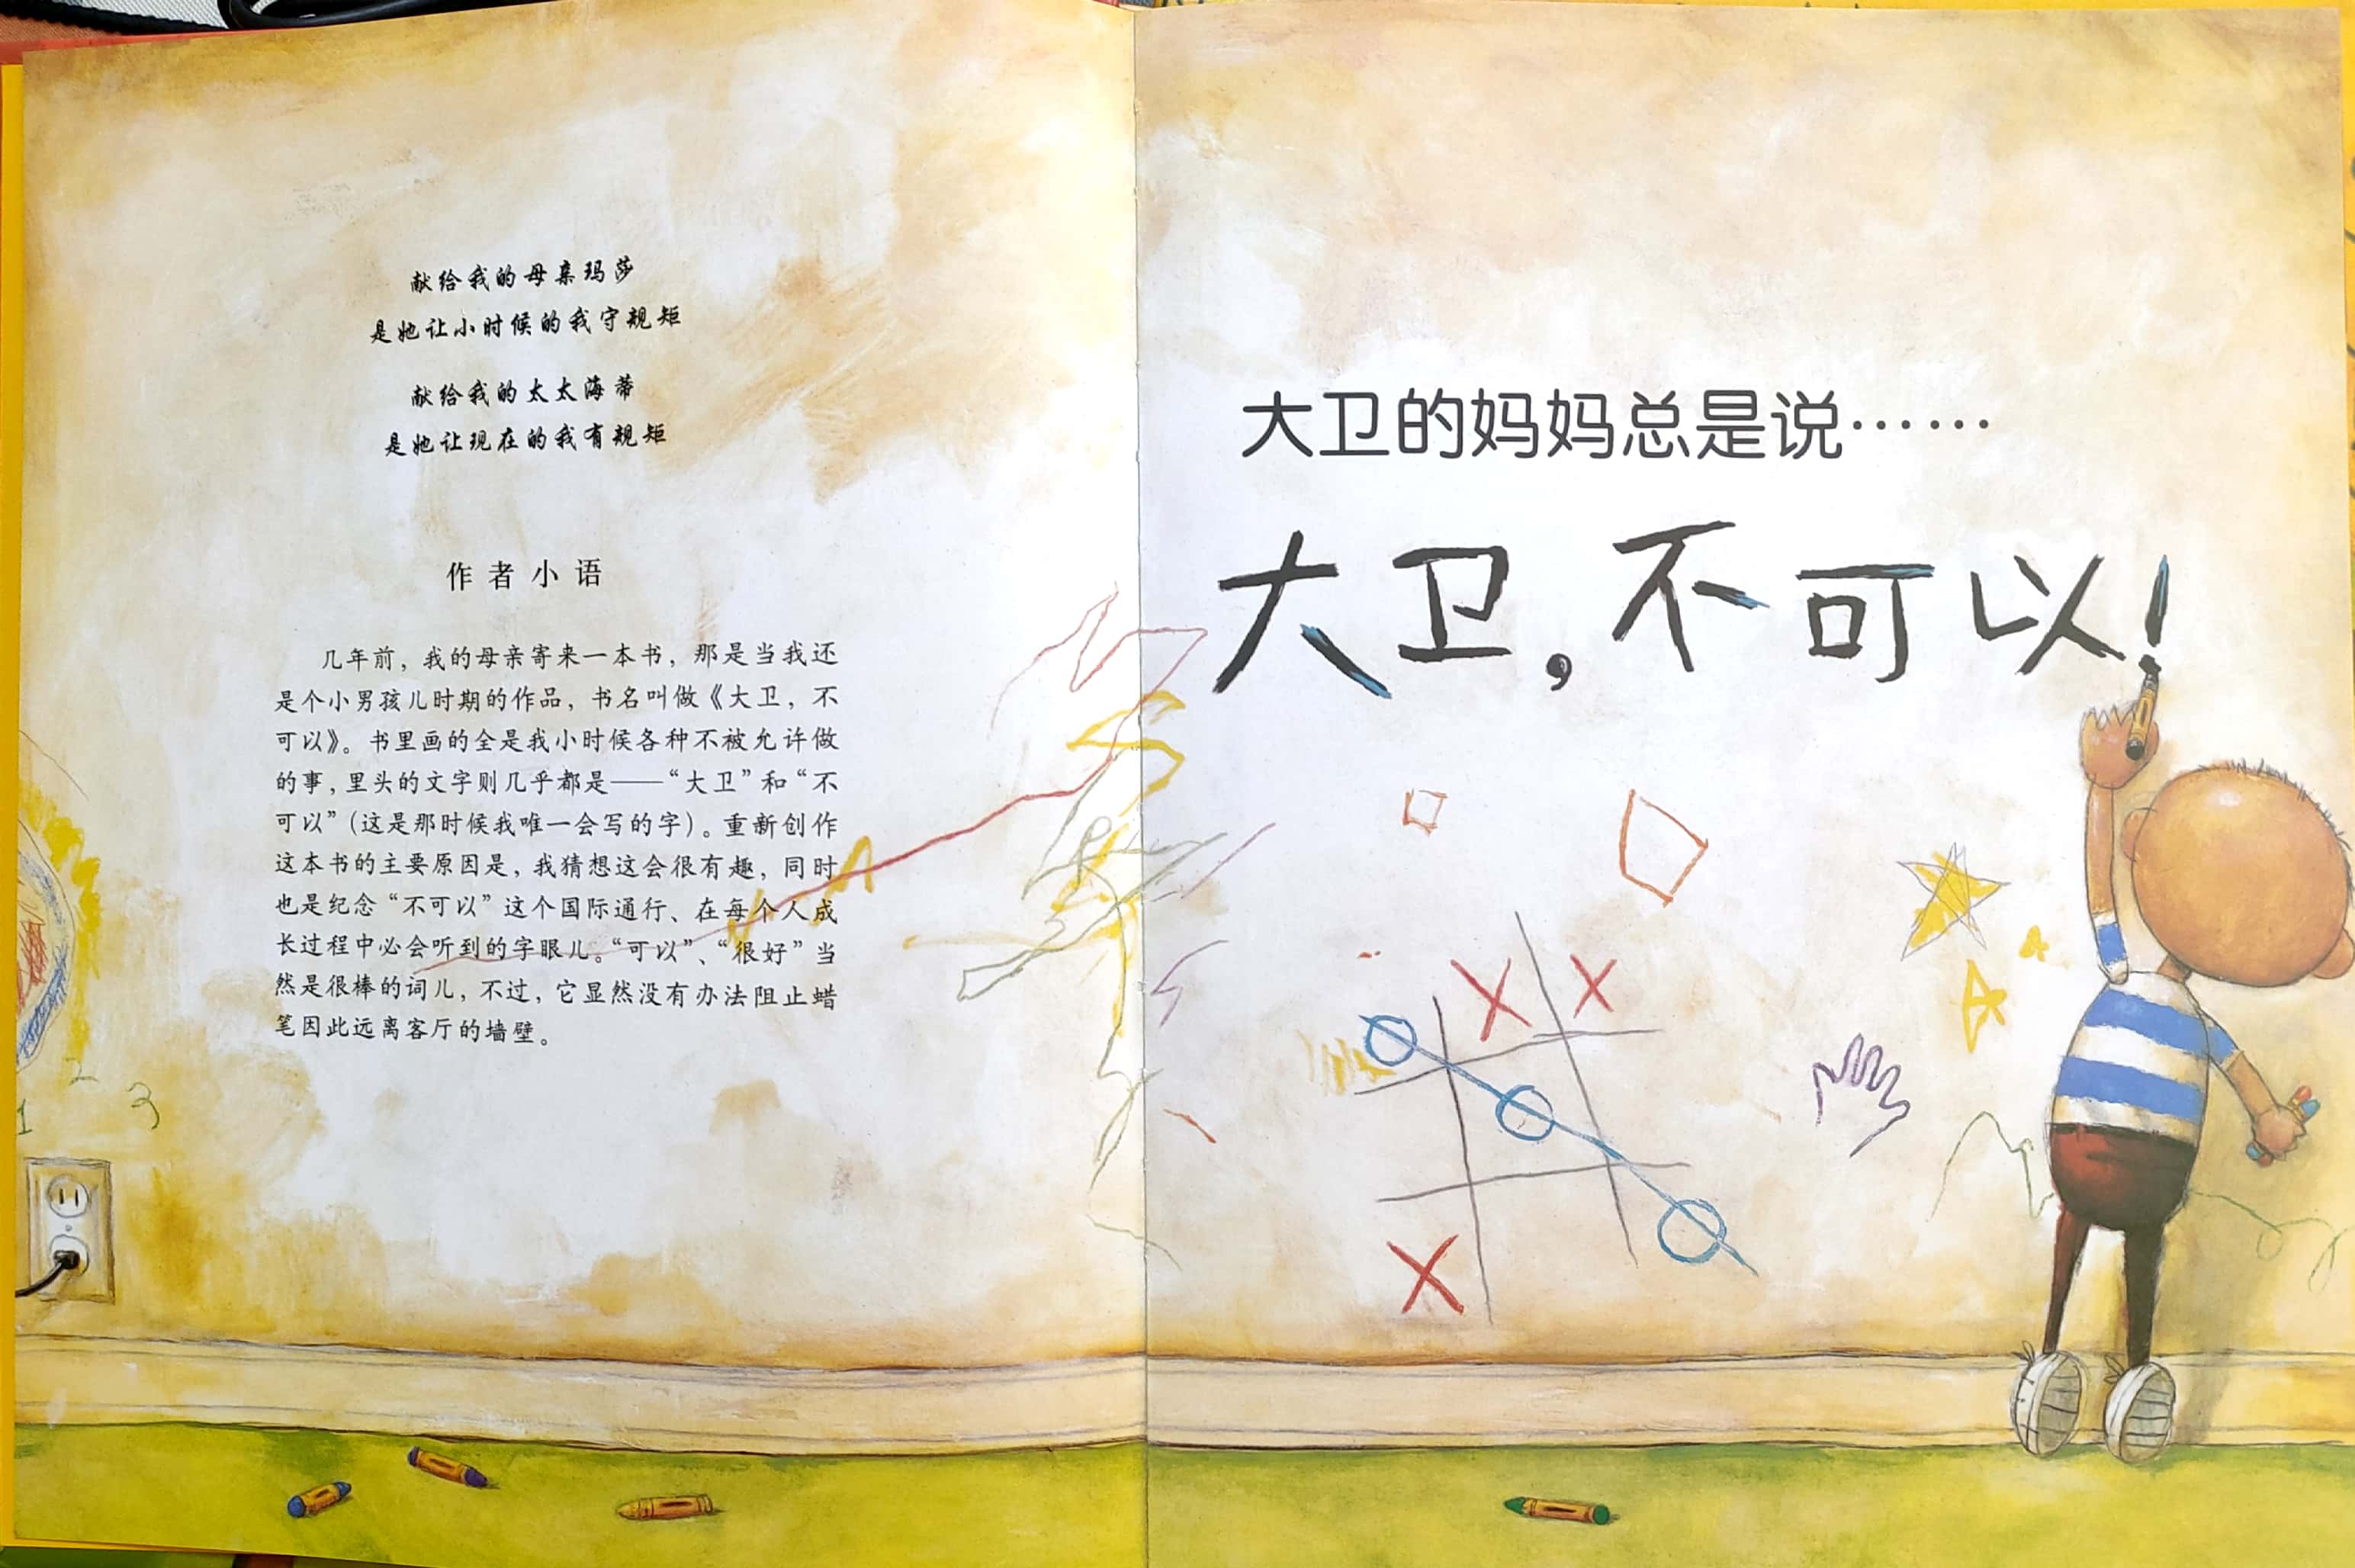 献给我的母亲玛莎
是她让小时候的我守规矩
献给我的太太海蒂
是她让现在的我有规矩
作者小语
几年前，我的母亲寄来一本书，那是当我还
是个小男孩儿时期的作品，书名叫做《大卫，不
可以》。书里画的全是我小时候各种不被允许做
的事，里头的文字则几乎都是——“大卫”和“不
可以”（这是那时候我唯一会写的字）。重新创作
这本书的主要原因是，我猜想这会很有趣，同时
也是纪念“不可以”这个国际通行、在每个人成
长过程中必会听到的字眼儿。“可以”、“很好”当
然是很棒的词儿，不过，它显然没有办法阻止蜡
笔因此远离客厅的墙壁。
1 2 3
大卫的妈妈总是说……
大卫，不可以！